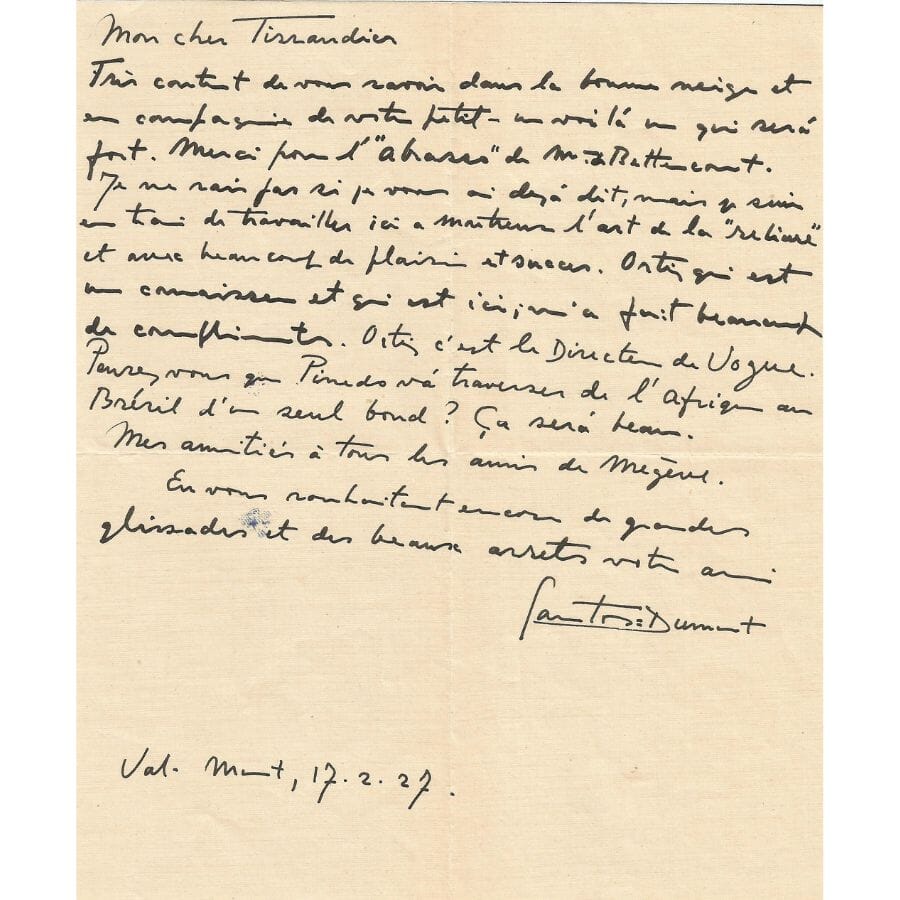 Mon cher Tissandier
Très content de vous savoir dans la bonne neige et
en compagnie de votre petit - en voilá un qui será
fort. Merci pour l'"Abrasso" de M. de Bettencourt.
Je ne sais pas si je vous ai dejá dit, mais je suis
en train de travailler ici a Montreux l'art de la "reliure"
et avec beaucoup de plaisir et succes. Ortiz qui est
un connaisseur et qui est ici, m'a fait beaucoup
de compliments. Ortiz c'est le Directeur de Vogue.
Pensez vous que Pinedo vá traverser de l'Afrique au
Brésil d'un seul bond? Ça será beau.
Mes amitiés à tous les amis de Megève.
En vous souhaitant encore de grandes
glissades et des beaux arrets votre ami
Santos=Dumont
Val-Mont, 17.2.27.